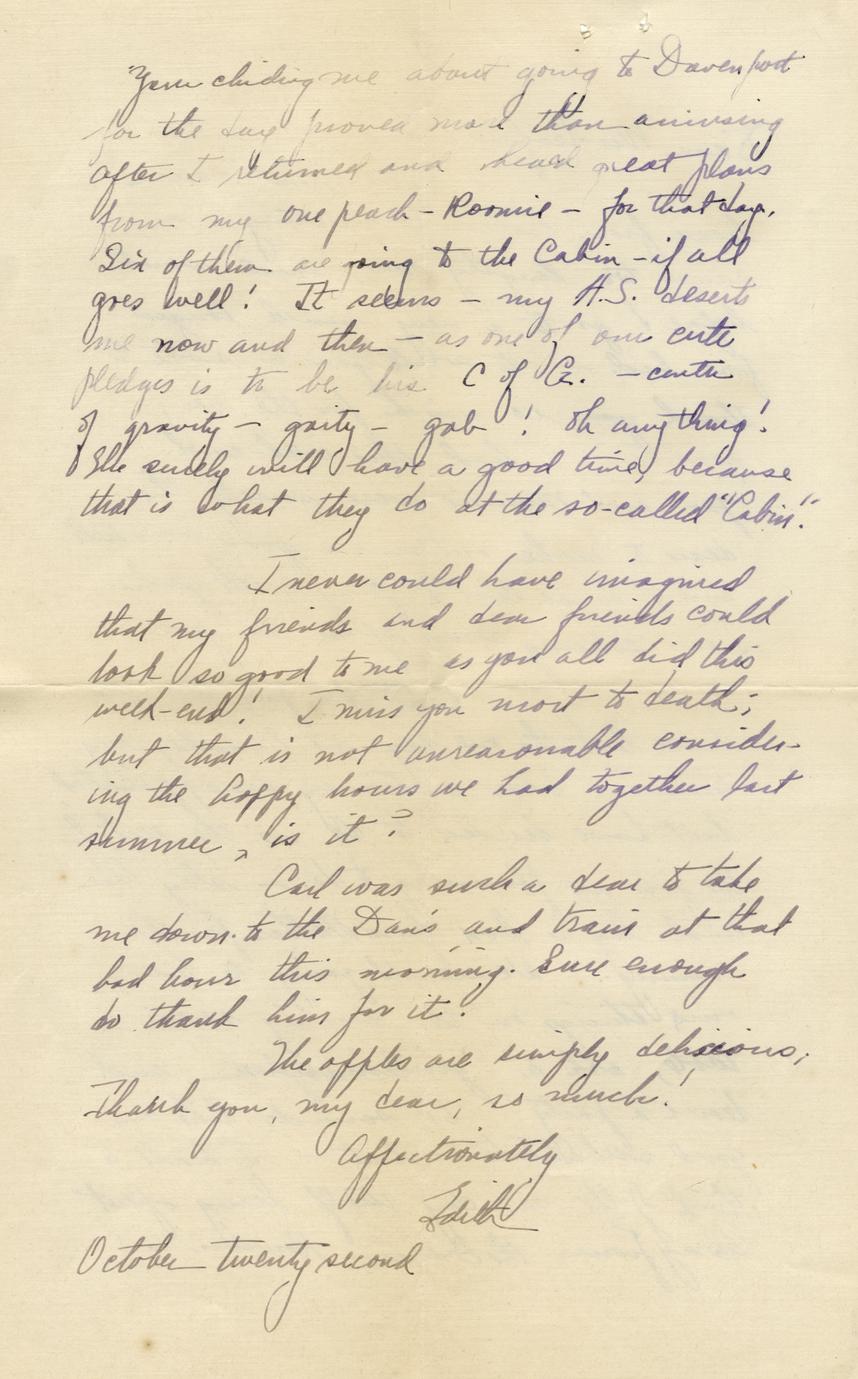 Your chiding me about going to Davenport
for the day proved more than amusing
after I returned and heard great plans
from my one peach - Roomie - for that day.
Six of them are going to the Cabin - if all
goes well! It seems - my H.S. deserts
me now and then - as one of our cute
pledges is to be his C of G. - center
of gravity - gaity - gab! Oh anything!
She surely will have a good time, because
that is what they do at the so-called "Cabin".
I never could have imagined
that my friends and dear friends could
look so good to me as you all did this
week-end! I miss you most to death;
but that is not unreasonable consider-
ing the happy hours we had together last
summer, is it?
Carl was such a dear to take
me down to the Dan's and train at that
bad hour this morning. Sure enough
do thank him for it.
The apples are simply delicious,
Thank you, my dear, so much!
Affectionately
Edith
October twenty second